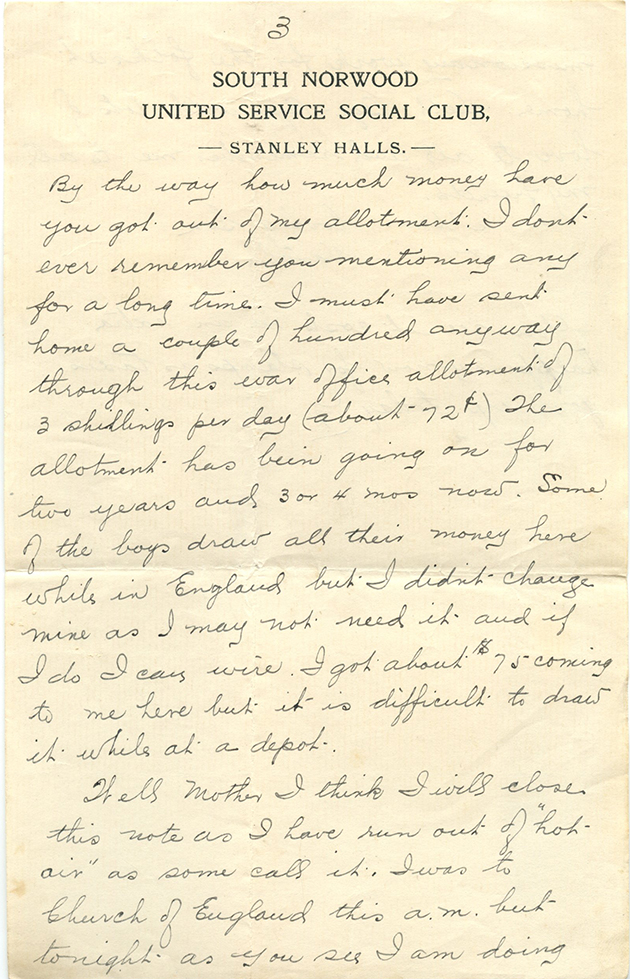 3
SOUTH NORWOOD
UNITED SERVICE SOCIAL CLUB,
— STANLEY HALLS. —
By the way how much money have
you got out of my allotment. I dont
ever remember you mentioning any
for a long time. I must have sent
home a couple of hundred anyway
through this war office allotment of
3 shillings per day (about 72¢) The
allotment has been going on for
two years and 3 or 4 mos now. Some
of the boys draw all their money here
while in England but I didn't change
mine as I may not need it and if
I do I can wire. I got about $75 coming
to me here but it is difficult to draw
it while at a depot.
Well Mother I think I will close
this note as I have run out of "hot
air" as some call it. I was to
Church of England this a.m. but
tonight as you see I am doing